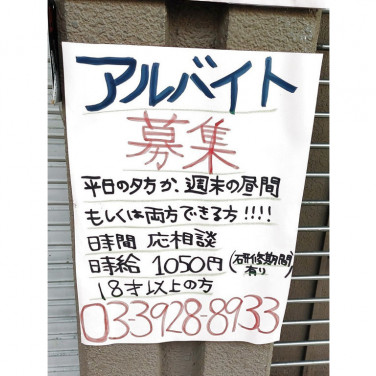 アルバイト
募集
平日の夕方か、週末の昼間
もしくは両方できる方!!!!
時間 応相談
時給 1050円(研修期間有り)
18才以上の方
03-3928-8933